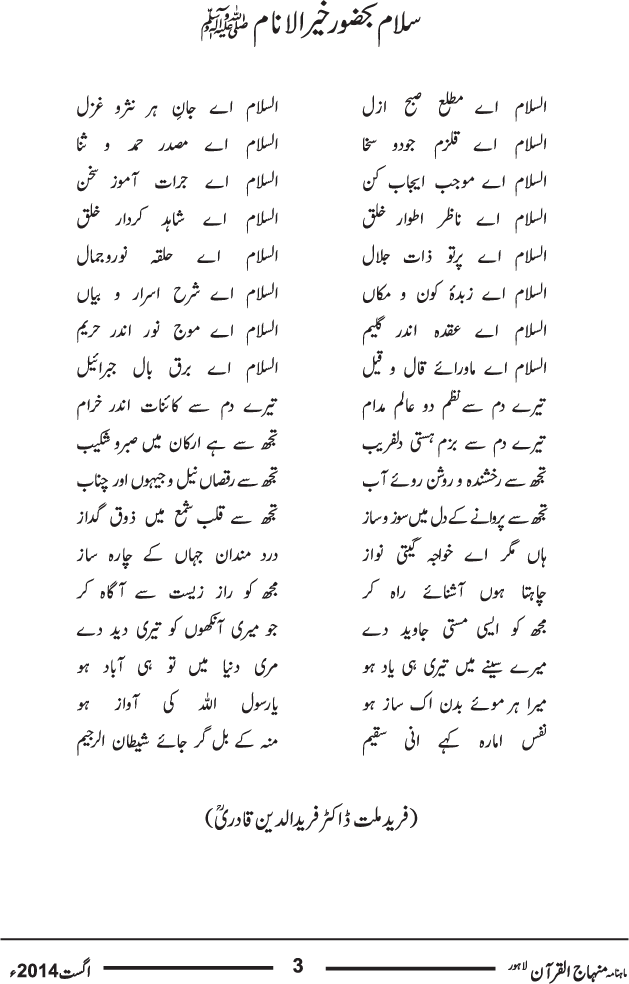 سلام بحضور خیر الانام ﷺ
السلام اے مطلع صبح ازل السلام اے جانِ ہر نثرو غزل
السلام اے قلزم جودو سخا السلام اے مصدر حمد و ثنا
السلام اے موجب ایجاب کن السلام اے جرات آموز سخن
السلام اے ناظر اطوار خلق السلام اے شاہد کردار خلق
السلام اے پرتو ذات جلال السلام اے حلقہ نوروجمال
السلام اے زبدۂ کون و مکاں السلام اے شرح اسرار و بیاں
السلام اے عقدہ اندر گلیم السلام اے موج نور اندر حریم
السلام اے ماورائے قال و قیل السلام اے برق بال جبرائیل
تیرے دم سے نظم دو عالم مدام تیرے دم سے کائنات اندر خرام
تیرے دم سے بزم ہستی دلفریب تجھ سے ہے ارکان میں صبرو شکیب
تجھ سے رخشندہ و روشن روئے آب تجھ سے رقصاں نیل و جیہوں اور چناب
تجھ سے پروانے کے دل میں سوز و ساز تجھ سے قلب شمع میں ذوق گداز
ہاں مگر اے خواجہ گیتی نواز درد مندان جہاں کے چارہ ساز
چاہتا ہوں آشنائے راہ کر مجھ کو راز زیست سے آگاہ کر
مجھ کو ایسی مستی جاوید دے جو میری آنکھوں کو تیری دید دے
میرے سینے میں تیری ہی یاد ہو مری دنیا میں تو ہی آباد ہو
میرا ہر موئے بدن اک ساز ہو یارسول اللہ کی آواز ہو
نفس امارہ کہے انی سقیم منہ کے بل گر جائے شیطان الرجیم
(فرید ملت ڈاکٹر فریدالدین قادریؒ)
ماہنامہ منہاج القرآن لاہور 3 اگست 2014ء